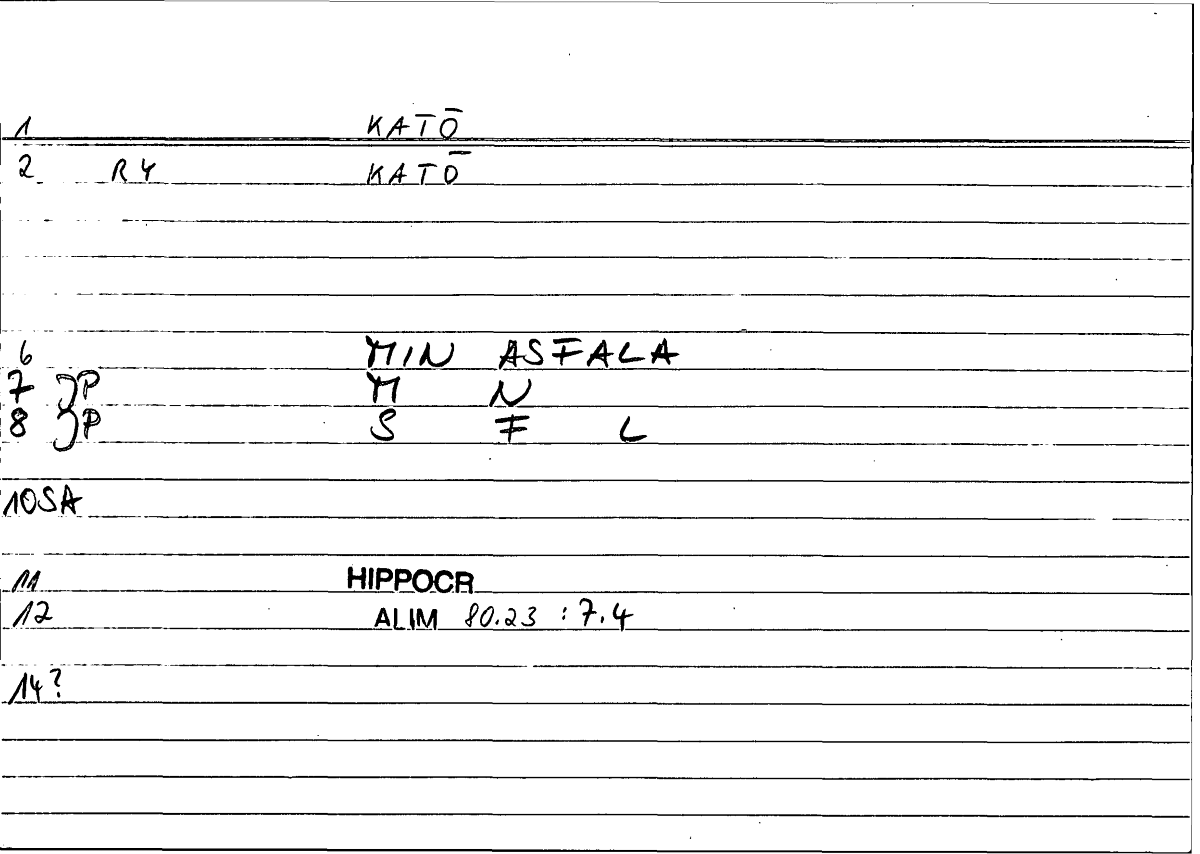 1 KATŌ
2 R4 KATŌ
6 MIN ASFALA
7 }P M N
8 }P S F L
10SA
11 HIPPOCR
12 ALIM 80.23 : 7.4
14?